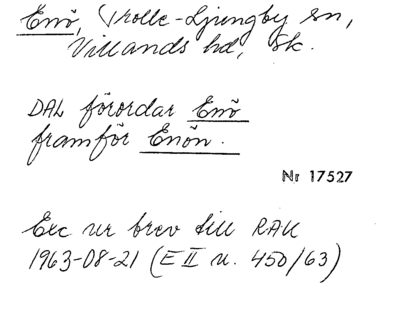 Enö, Trolle-Ljungby sn,
Villands hd, Sk.
DAL förordar Enö
framför Enön.
Nr 17527
Exc ur brev till RAK
1963-08-21 (E II n. 450/63)